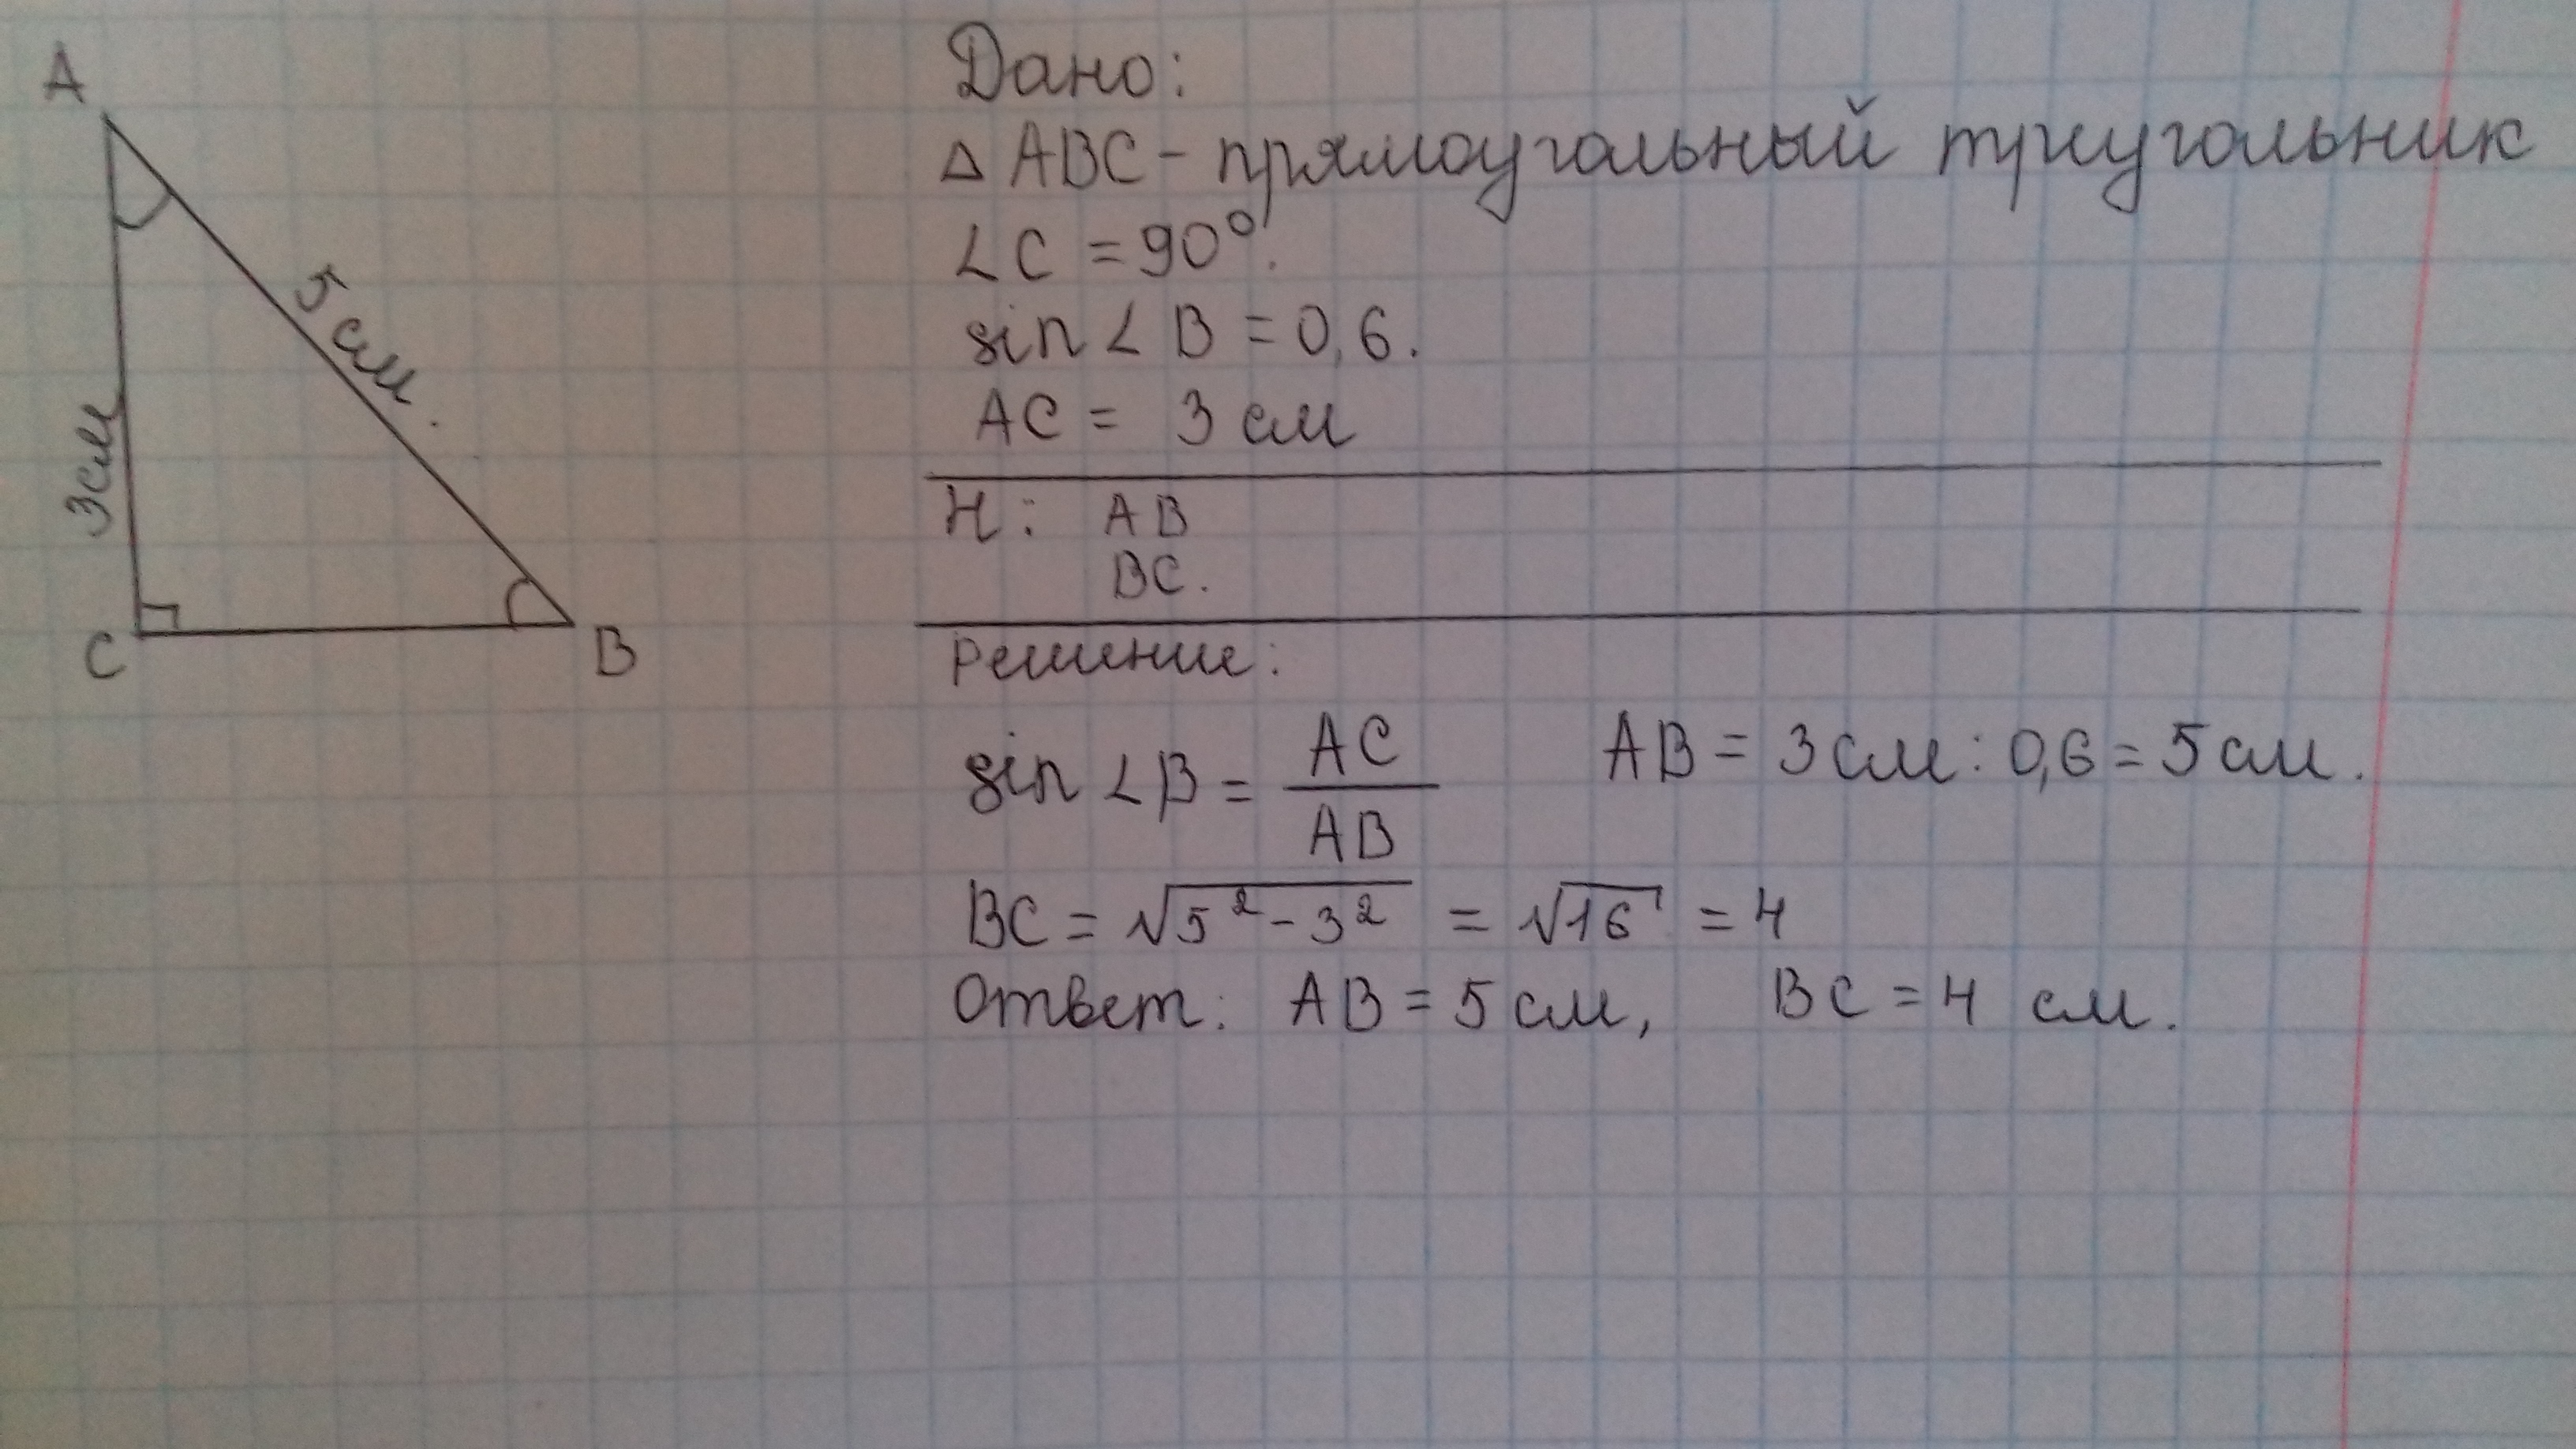 A
5 см.
3см
C
B
Дано:
△ ABC - прямоугольный триугольник
∠C = 90°.
sin∠B = 0,6.
AC = 3 см
Н: AB
BC.
Решение:
sin∠B = AC/AB AB = 3 см : 0,6 = 5 см.
BC = √(5² - 3²) = √16 = 4
Ответ: AB = 5 см, BC = 4 см.